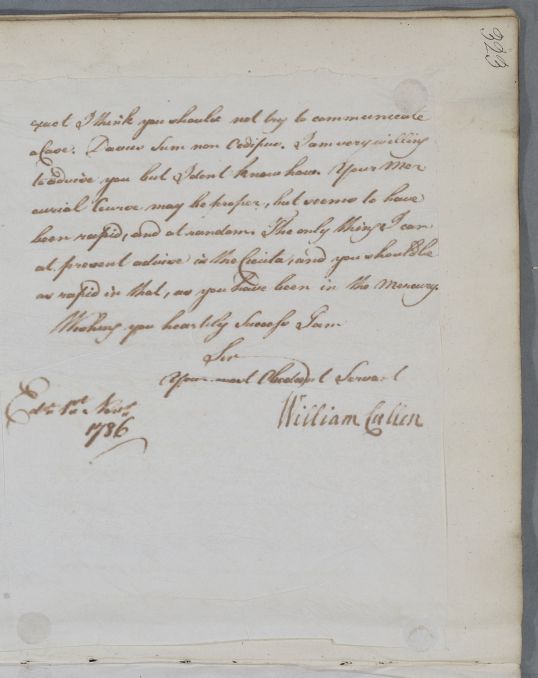 323
exact I think you should not try to communicate
a Case. Davus Sum non Oedipus. I am very willing
to advise you but I dont know how. Your Mer
curial Course may be proper, but seems to have
been rapid, and at random. The only thing I can
at present advise is the Cicuta, and you should be
as rapid in that, as you have been in the Mercury.
Wishing you heartily Success I am
Sir
Your most Obedient Servant
William Cullen
Edr. 1st. Novr.
1786